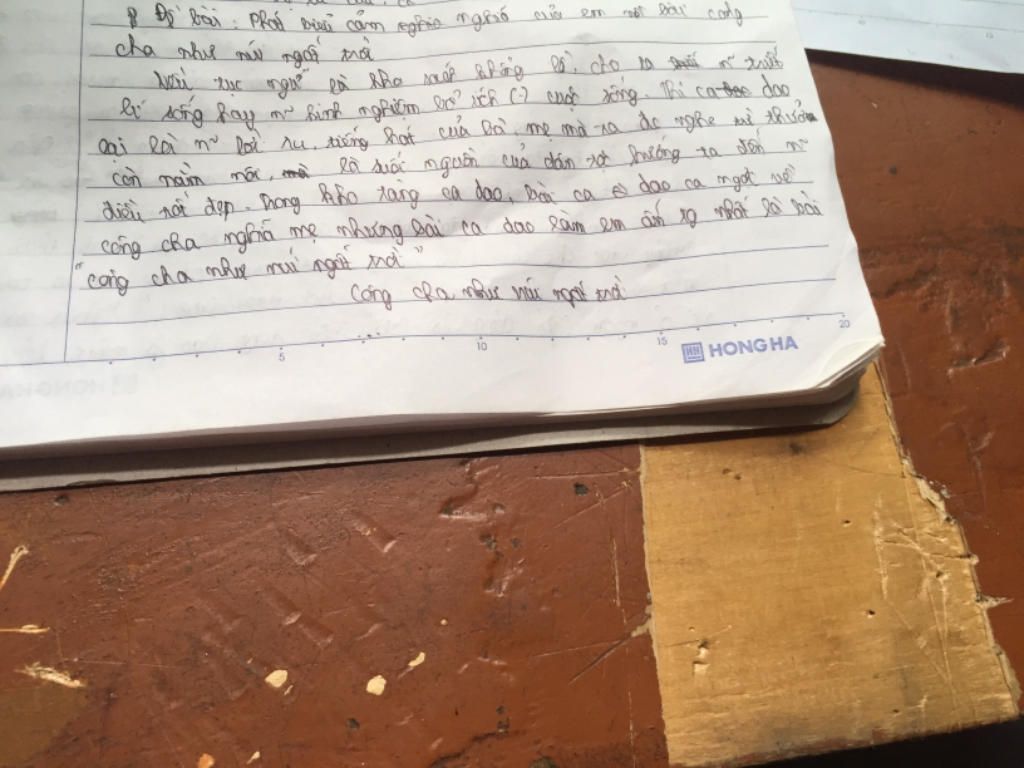 Đề bài: Phát biểu cảm nghĩ của em về bài công
cha như núi ngất trời
Nếu tục ngữ là kho khổng lồ, cho ta n~ triết
lí sống hay n~ kinh nghiệm bổ ích (?) cuộc sống. Thì ca dao
lại là n~ lời ru, tiếng hát của bà, mẹ mà ta đc nghe từ thưở
còn nằm nôi, là suối nguồn của dân tộc hướng ta đến n~
điều tốt đẹp. Trong kho tàng ca dao, bài ca dao ca ngợi về
công cha nghĩa mẹ nhưng bài ca dao làm em ấn tg nhất là bài
"công cha như núi ngất trời"
Công cha như núi ngất trời
5 10 15 20
HONG HA